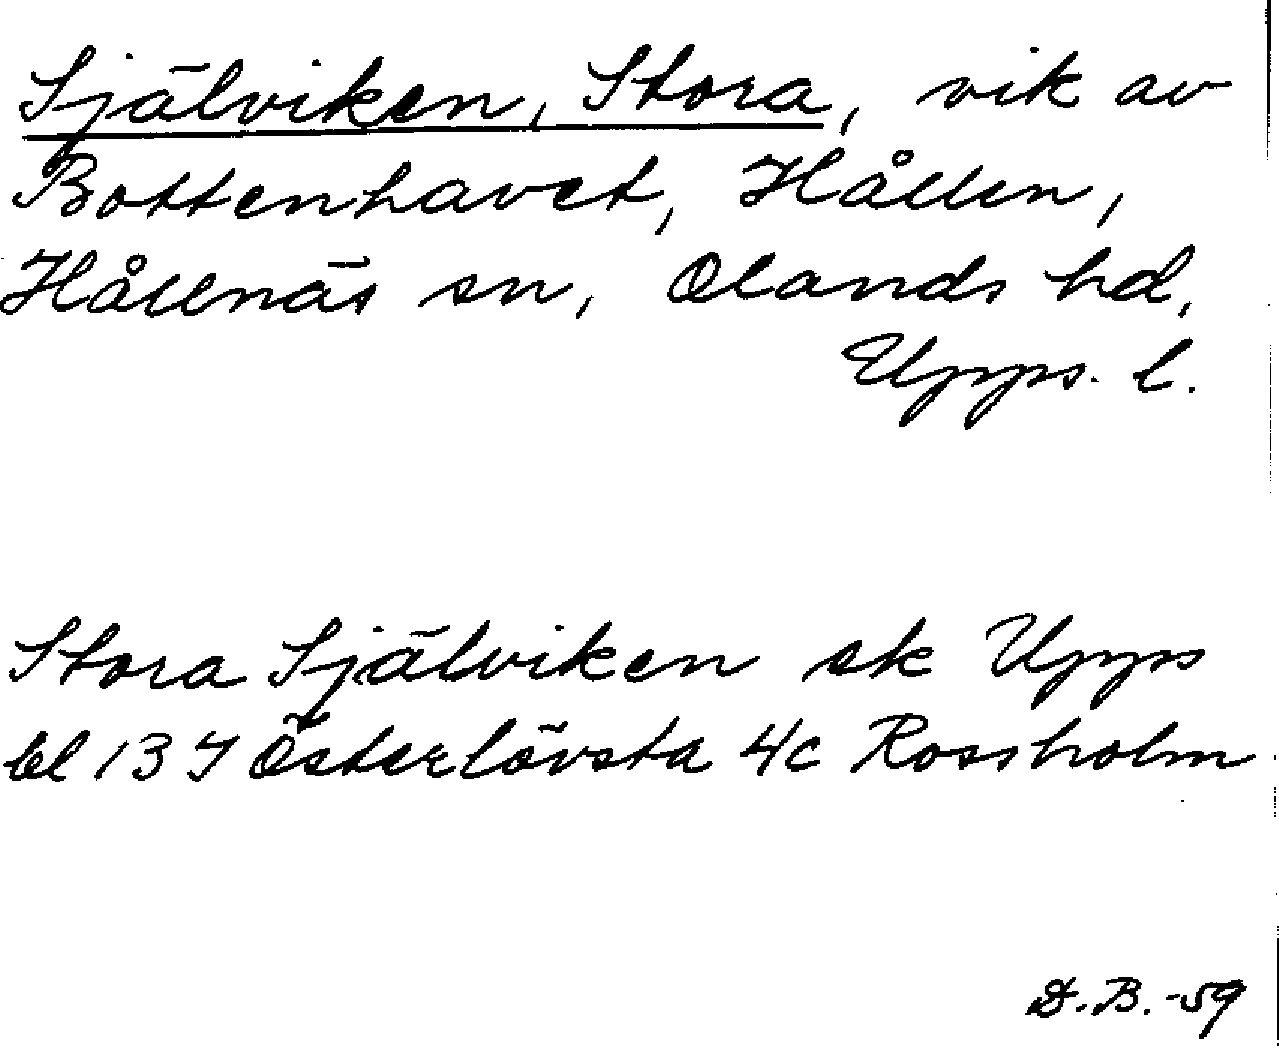 Själviken, Stora, vik av
Bottenhavet, Hållen,
Hållnäs sn, Olands hd,
Upps. l.
Stora Själviken ek Upps
bl 13 I Österlövsta 4c Rossholm
D.B.-59